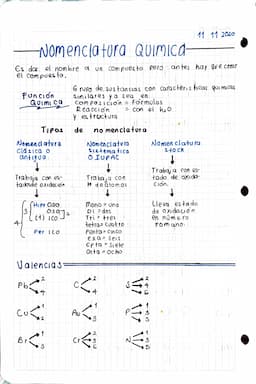 11 11 2020
Nomenclatura Química
Es dar el nombre a un compuesto pero antes hay que crear
el compuesto.
Grupo de sustancias con características químicas
Función similares ya sea en
Química composición = fórmulas
Reacción = con el H2O
y estructura
Tipos de nomenclatura
Nomenclatura Nomenclatura Nomenclatura
clásica o sistemática stock
antigua O IUPAC
Trabaja con es- Trabaja con Trabaja con es-
tado de oxidación # de átomos tado de oxida-
ción.
Hipo oso Mono = uno Lleva estado
oso Di = dos de oxidación
ico Tri = tres en número
Tetra = cuatro romano.
Per ico Penta = cinco
Exa = seis
Epta = siete
Octa = ocho
Valencias
Pb 2 4 C 2 4 S 2 4 6
Cu 1 2 Au 1 3 P 1 3 5
Br 1 3 5 Cr 2 3 6 N 1 3 5